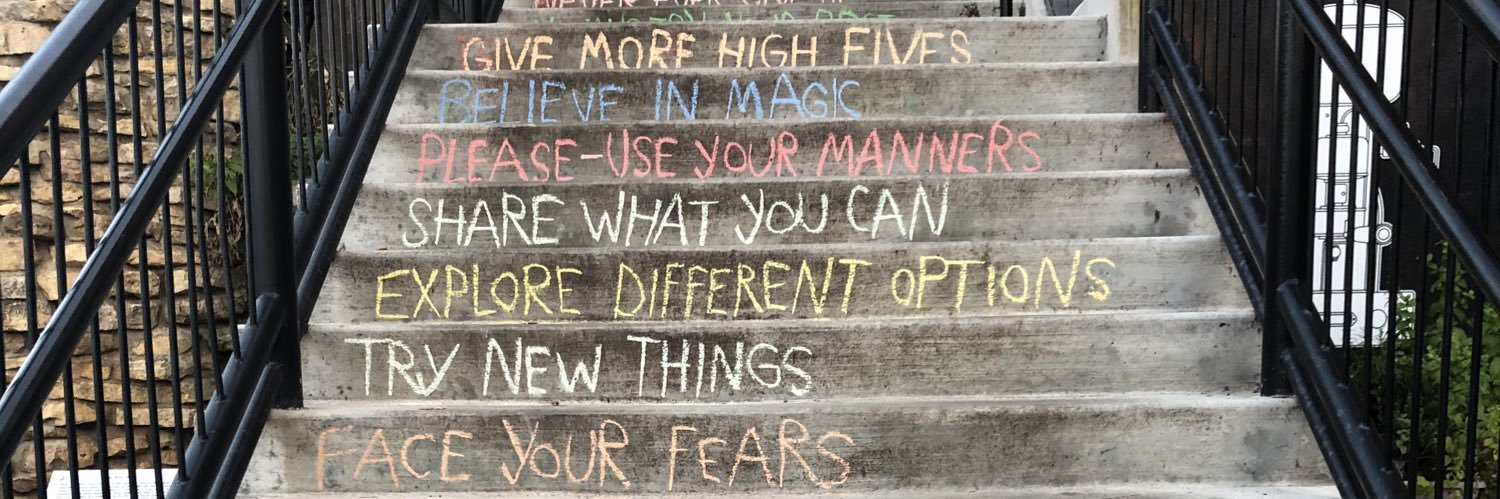 GIVE MORE HIGH FIVES
BELIEVE IN MAGIC
PLEASE-USE YOUR MANNERS
SHARE WHAT YOU CAN
EXPLORE DIFFERENT OPTIONS
TRY NEW THINGS
FACE YOUR FEARS